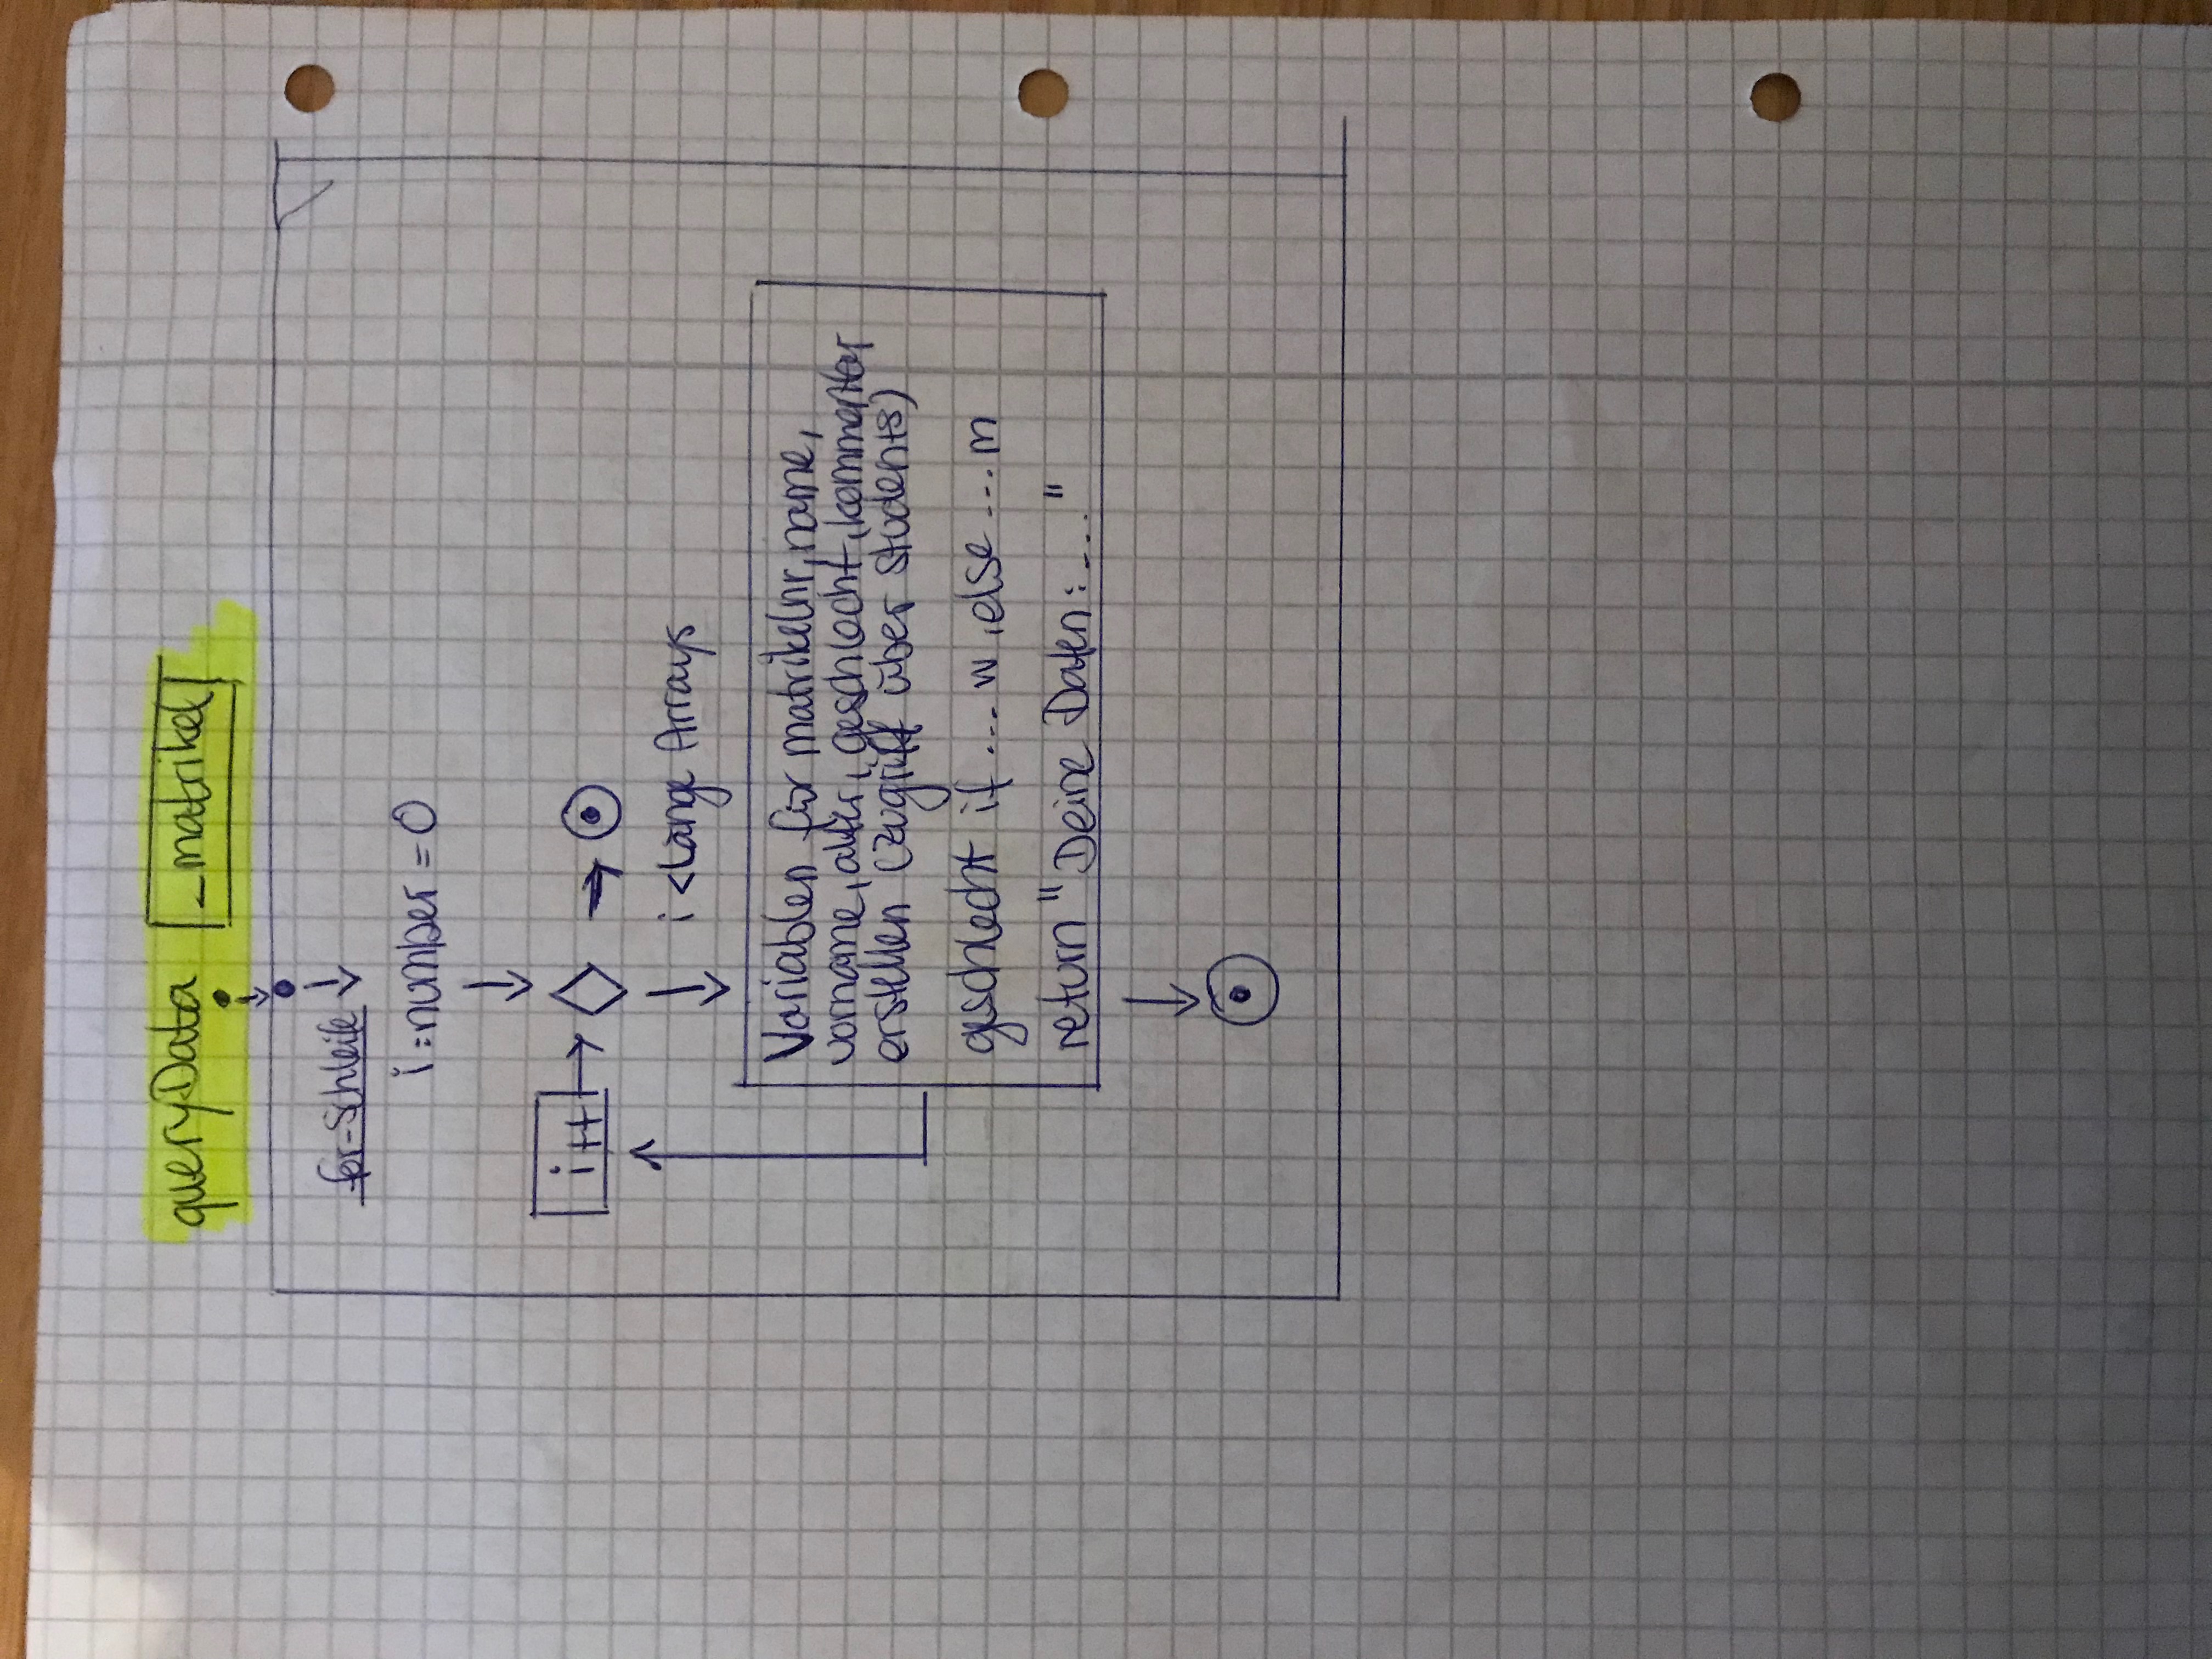 queryData _matrikel
for-Schleife
i:number = 0
i++
i < Länge Arrays
Variablen für matrikelnr, name,
vorname, alter, geschlecht, kommentar
erstellen (Zugriff über students)
geschlecht if ... w, else ... m
return "Deine Daten: ..."